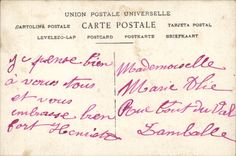 UNION POSTALE UNIVERSELLE
CARTOLINA POSTALE CARTE POSTALE TARJETA POSTAL
LEVELEZO-LAP POSTCARD POSTKARTE BRIEFKAART
je pense bien
à vous tous
et vous
embrasse bien
fort
Mademoiselle
Marie
Rue
Lamballe